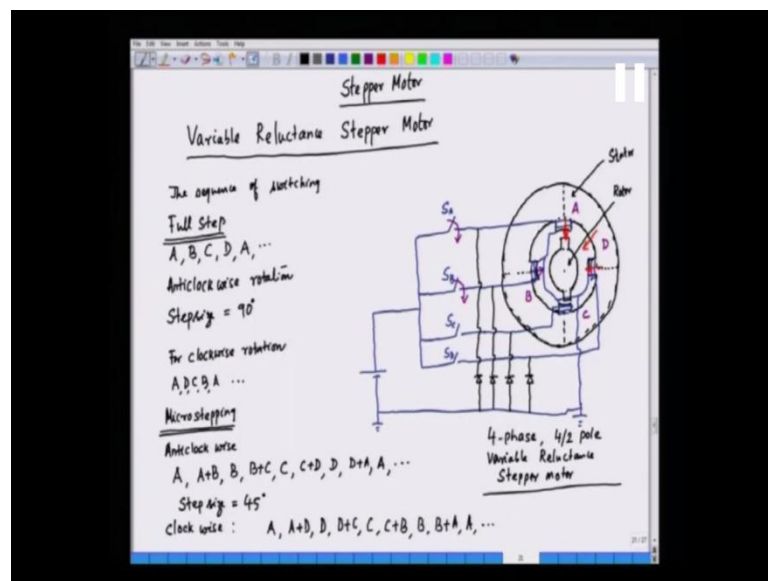 File Edit View Insert Actions Tools Help
Stepper Motor
Variable Reluctance Stepper Motor
The sequence of switching
Full Step
A, B, C, D, A, ...
Anticlockwise rotation
Step size = 90°
For clockwise rotation
A, D, C, B, A ...
Microstepping
Anticlockwise
A, A+B, B, B+C, C, C+D, D, D+A, A, ...
Step size = 45°
Clockwise : A, A+D, D, D+C, C, C+B, B, B+A, A, ...
Stator
Rotor
SA
SB
SC
SD
A
B
C
D
4-phase, 4/2 pole
Variable Reluctance
Stepper motor
21